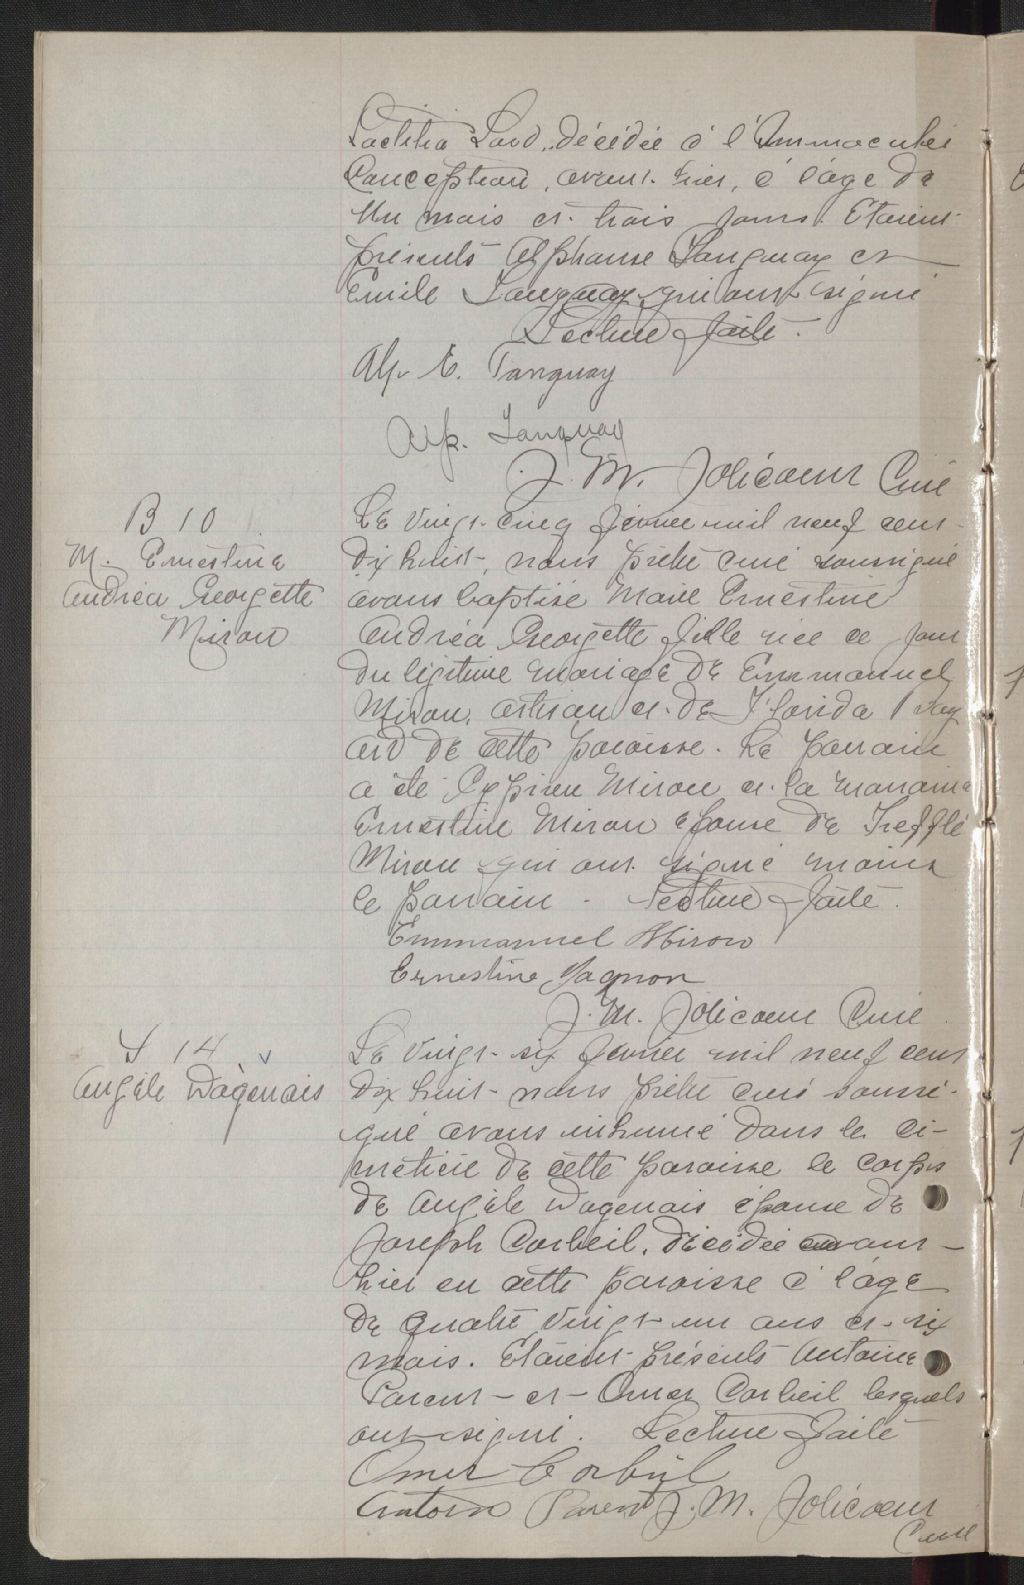 Laetitia Lord, décédée à l'Immaculée
Conception, avant-hier, à l'âge de
un mois et trois jours. Etaient
présents Alphonse Tanguay et
Emile Tanguay qui ont signé
Lecture faite.
Alp. E. Tanguay
Alp. Tanguay
J. M. Jolicoeur Curé
B 10
M. Ernestine
Andréa Georgette
Miron
Le vingt-cinq février mil neuf cent
dix huit, nous prêtre curé soussigné
avons baptisé Marie Ernestine
Andréa Georgette fille née ce jour
du légitime mariage de Emmanuel
Miron, artisan et de Florida
de cette paroisse. Le parrain
a été Miron et la marraine
Ernestine Miron épouse de Trefflé
Miron qui ont signé moins
le parrain. Lecture faite.
Emmanuel Miron
Ernestine Gagnon
J. M. Jolicoeur Curé
S 14
Angèle Dagenais
Le vingt-six février mil neuf cent
dix huit nous prêtre curé soussi-
gné avons inhumé dans le ci-
metière de cette paroisse le corps
de Angèle Dagenais épouse de
Joseph Corbeil, décédée avant-
hier en cette paroisse à l'âge
de quatre vingt un ans et six
mois. Etaient présents Antoine
Parent et Omer Corbeil lesquels
ont signé. Lecture faite
Omer Corbeil
Antoin Parent J. M. Jolicoeur
Curé